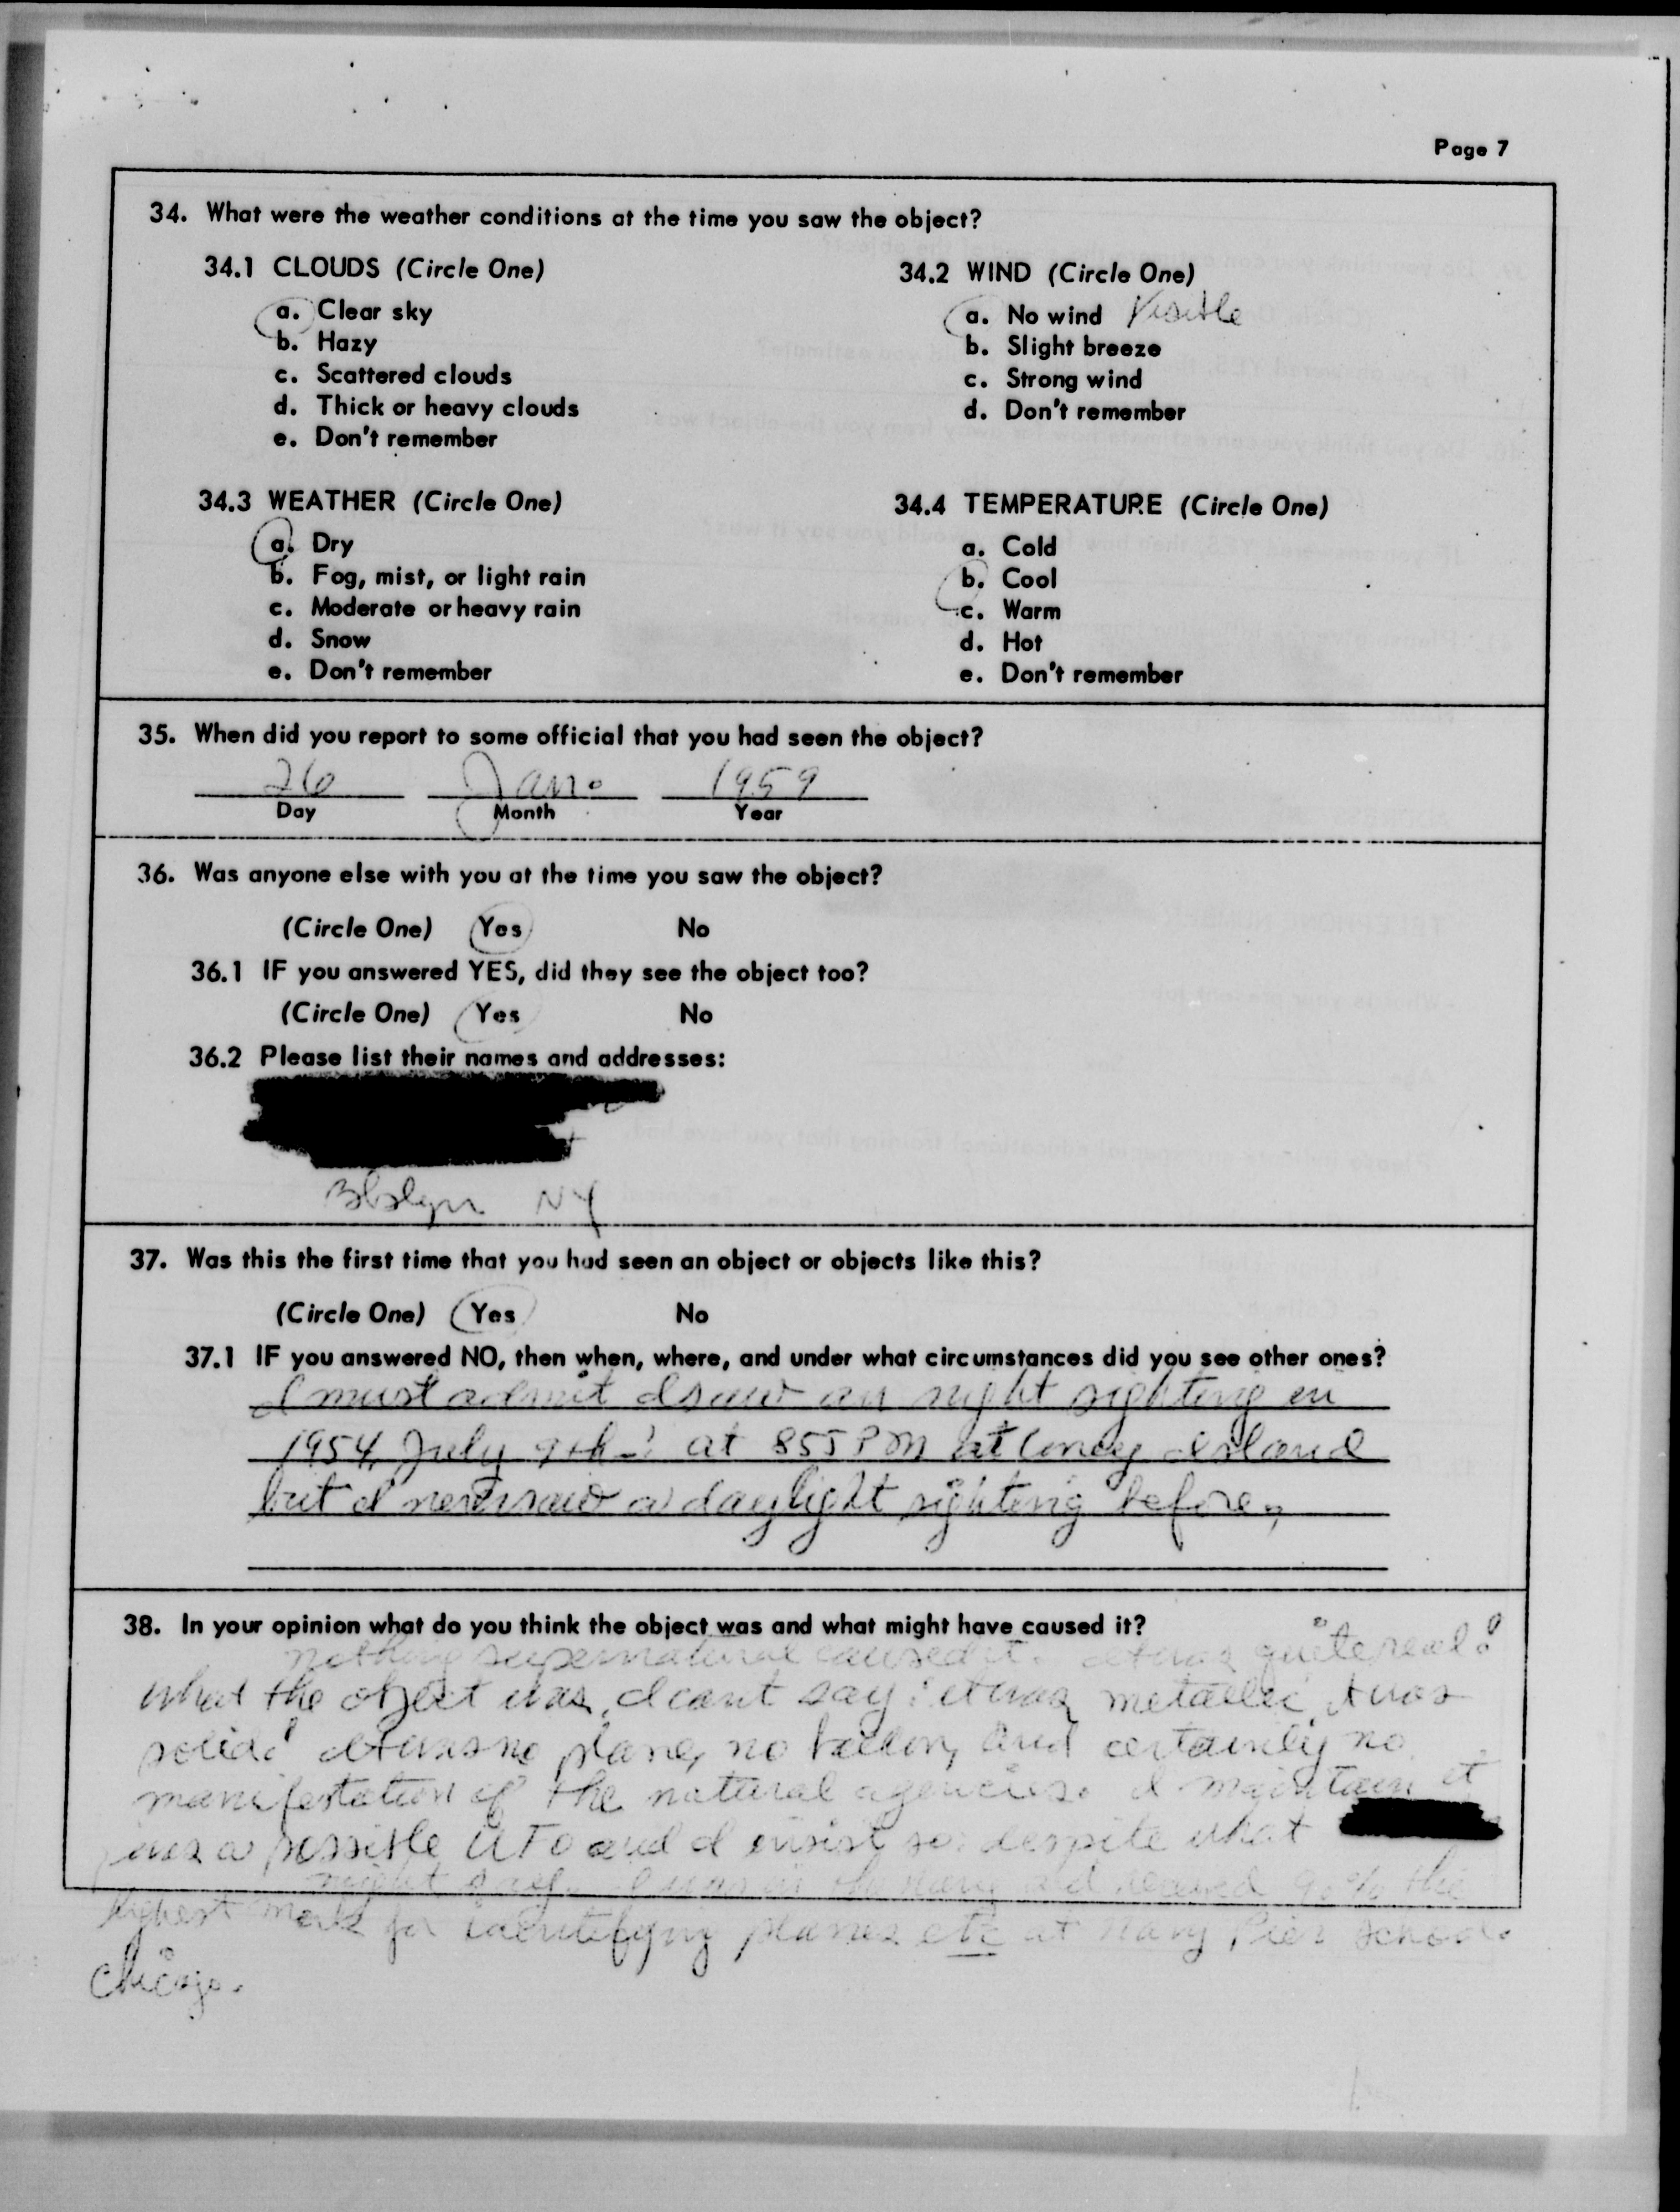 Page 7
34. What were the weather conditions at the time you saw the object?
34.1 CLOUDS (Circle One)
a. Clear sky
b. Hazy
c. Scattered clouds
d. Thick or heavy clouds
e. Don't remember
34.2 WIND (Circle One)
a. No wind Visible
b. Slight breeze
c. Strong wind
d. Don't remember
34.3 WEATHER (Circle One)
a. Dry
b. Fog, mist, or light rain
c. Moderate or heavy rain
d. Snow
e. Don't remember
34.4 TEMPERATURE (Circle One)
a. Cold
b. Cool
c. Warm
d. Hot
e. Don't remember
35. When did you report to some official that you had seen the object?
26 Jan. 1959
Day Month Year
36. Was anyone else with you at the time you saw the object?
(Circle One) Yes No
36.1 IF you answered YES, did they see the object too?
(Circle One) Yes No
36.2 Please list their names and addresses:
NY
37. Was this the first time that you had seen an object or objects like this?
(Circle One) Yes No
37.1 IF you answered NO, then when, where, and under what circumstances did you see other ones?
I must admit I saw an night sighting in
1954, July 9th at 855 PM at Coney Island
but I never saw a daylight sighting before,
38. In your opinion what do you think the object was and what might have caused it?
nothing supernatural caused it. It was quite real!
what the object was, I cant say: it was metallic, it was
solid! It was no plane, no and certainly no
manifestation of the natural agencies. I maintain it
was a possible UFO and I insist so despite what
might say. I was in the navy and received 90% the
highest mark for identifying planes etc at navy Pier School.
Chicago.